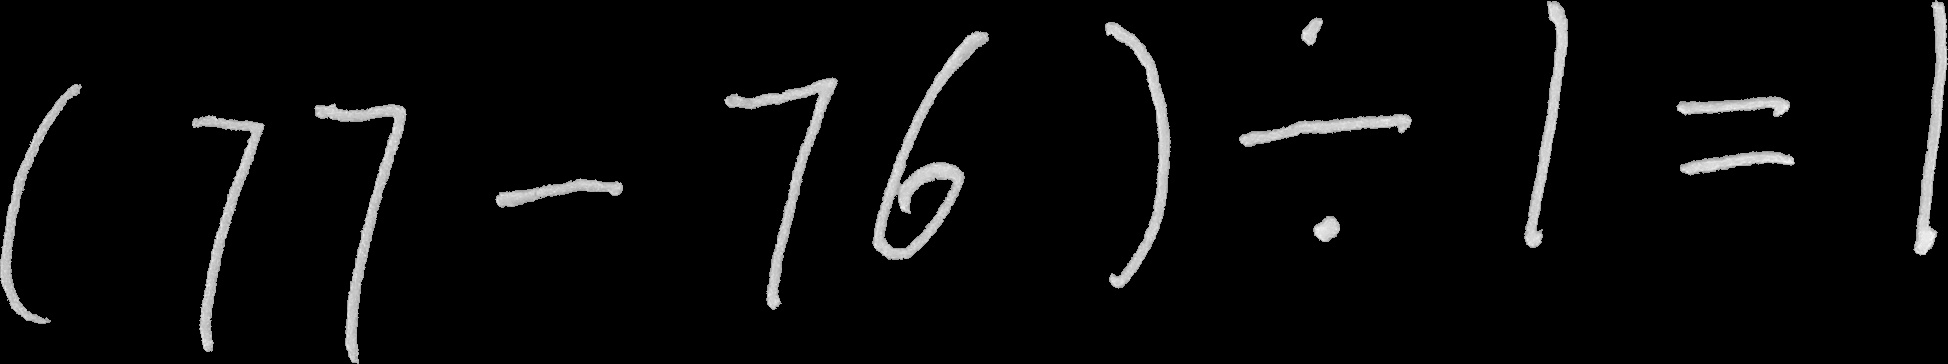 (77-76)÷1=1